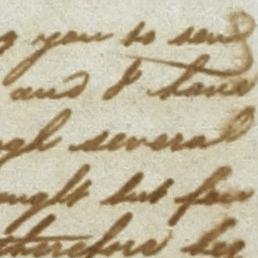 you to send
and I have
several
but few
therefore beg